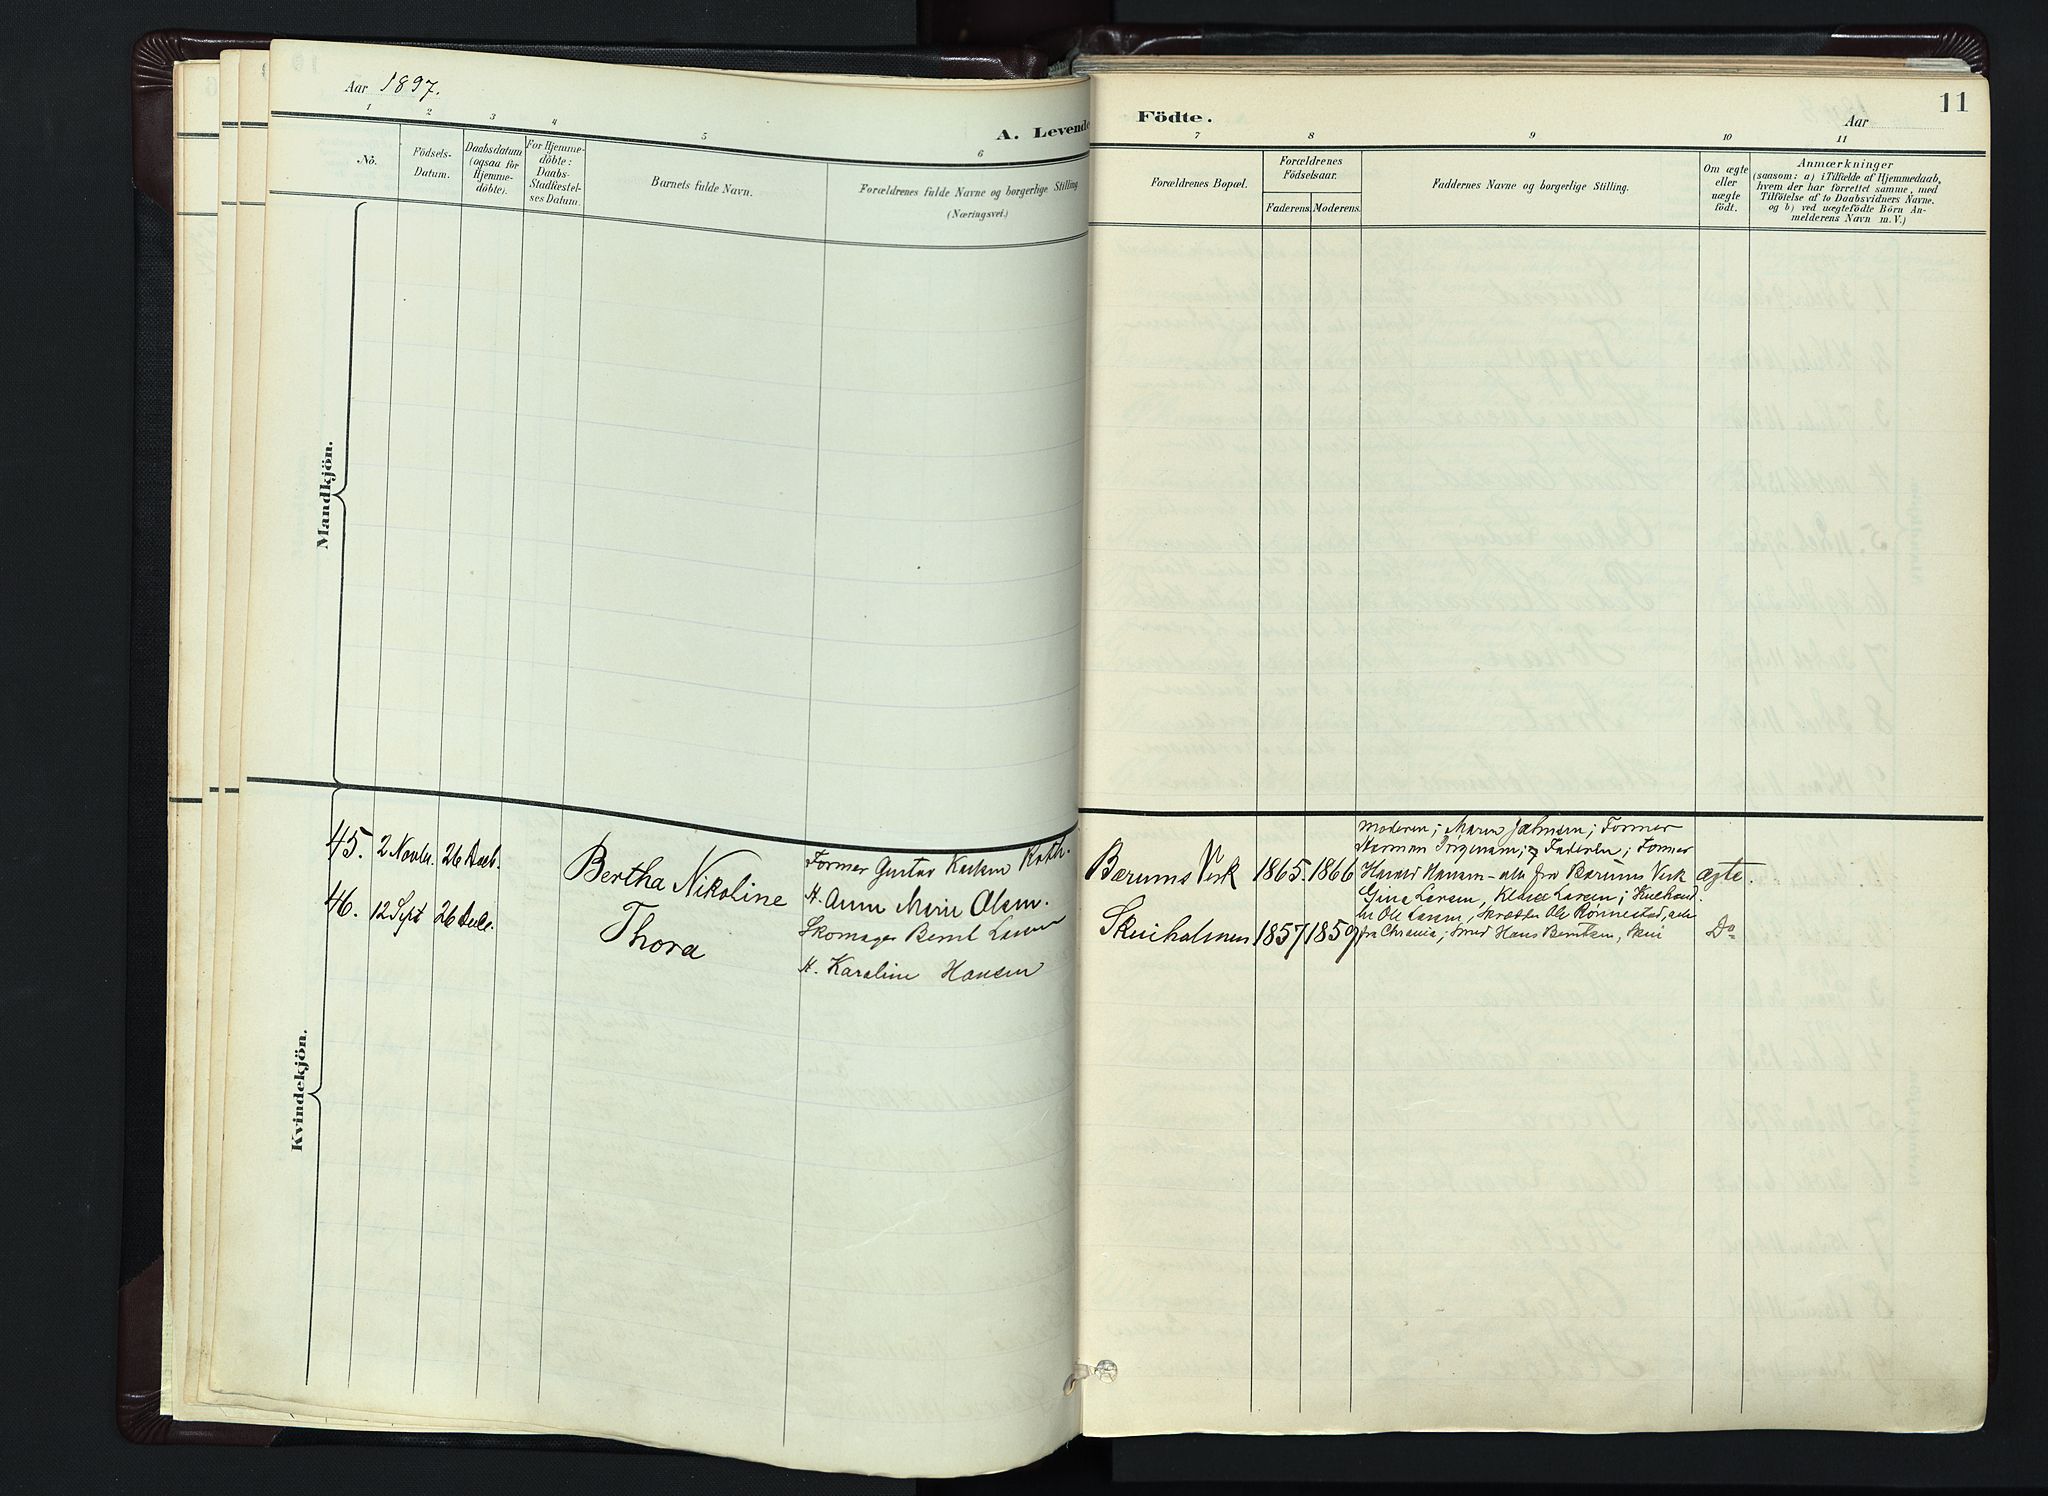 Aar 1897.
A. Levende
Födte.
Aar
11
1 2 3 4 5 6 7 8 9 10 11
Nò.
Födsels-
Datum.
Daabsdatum
(ogsaa for
Hjemme-
döbte).
For Hjemme-
döbte:
Daabs-
Stadfæstel-
ses Datum.
Barnets fulde Navn.
Forældrenes fulde Navne og borgerlige Stilling
(Næringsvei.)
Forældrenes Bopæl.
Forældrenes
Födselsaar.
Faderens. Moderens.
Faddernes Navne og borgerlige Stilling.
Om ægte
eller
uægte
födt.
Anmærkninger
(saasom: a) i Tilfælde af Hjemmedaab,
hvem der har forrettet samme, med
Tilföielse af to Daabsvidners Navne.
og b) ved uægtefödte Börn An-
melderens Navn m. V.)
Mandkjön.
Kvindekjön.
45. 2 Novbr. 26 Decb.
Bertha Nikoline
Former Gustav Karlsen Roth.
H. Anne Marie Olsen.
Bærums Verk
1865. 1866
Moderen; Maren Jahnsen; Former
Herman; Faderen; Former
Harald Hansen - alle fra Bærums Verk
ægte.
46. 12 Sept 26 Decb.
Thora
Skomager Bernt Larsen
H. Karoline Hansen
Skuiholmen
1857 1859
Gina Larsen, Larsen;
Ole Larsen, Skrædder Ole Rønnestad, alle
fra Chrania; Smed Hans Berntsen, Skui
Do